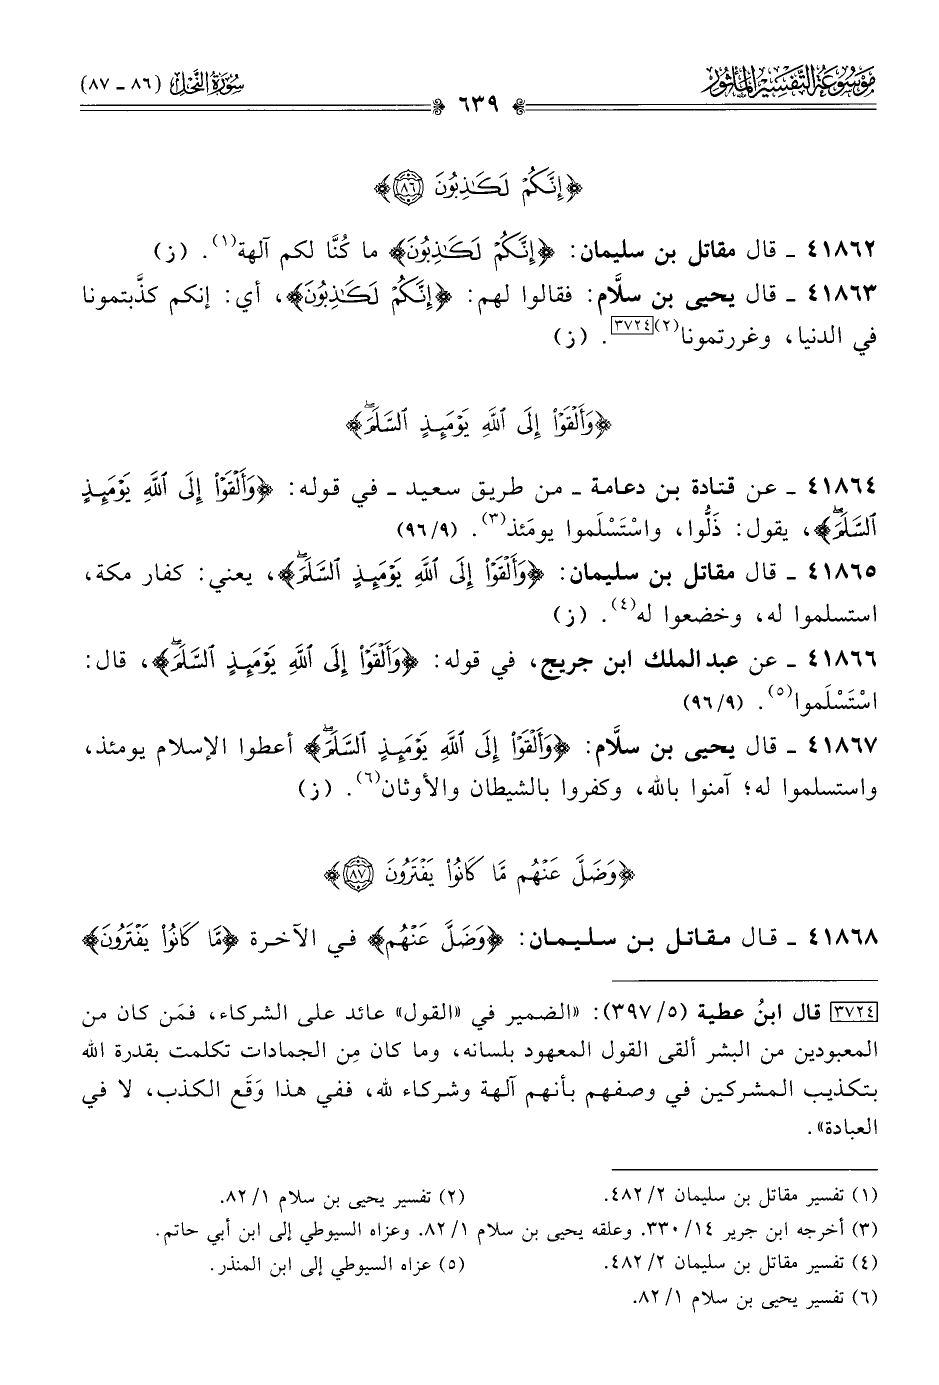 مَوْسُوعَةُ التَّفْسِيرِ المَأْثُورِ
سُورَةُ النَّحْلِ (٨٦ ـ ٨٧)
٦٣٩
﴿إِنَّكُمْ لَكَـٰذِبُونَ ٨٦﴾
٤١٨٦٢ ـ قال مقاتل بن سليمان: ﴿إِنَّكُمْ لَكَـٰذِبُونَ﴾ ما كُنَّا لكم آلهة(١). (ز)
٤١٨٦٣ ـ قال يحيى بن سلَّام: فقالوا لهم: ﴿إِنَّكُمْ لَكَـٰذِبُونَ﴾، أي: إنكم كذَّبتمونا
في الدنيا، وغررتمونا(٢)[٣٧٢٤]. (ز)
﴿وَأَلْقَوْا۟ إِلَى ٱللَّهِ يَوْمَئِذٍ ٱلسَّلَمَ ۖ﴾
٤١٨٦٤ ـ عن قتادة بن دعامة ـ من طريق سعيد ـ في قوله: ﴿وَأَلْقَوْا۟ إِلَى ٱللَّهِ يَوْمَئِذٍ
ٱلسَّلَمَ ۖ﴾، يقول: ذَلُّوا، واسْتَسْلَموا يومَئذ(٣). (٩٦/٩)
٤١٨٦٥ ـ قال مقاتل بن سليمان: ﴿وَأَلْقَوْا۟ إِلَى ٱللَّهِ يَوْمَئِذٍ ٱلسَّلَمَ ۖ﴾، يعني: كفار مكة،
استسلموا له، وخضعوا له(٤). (ز)
٤١٨٦٦ ـ عن عبد الملك ابن جريج، في قوله: ﴿وَأَلْقَوْا۟ إِلَى ٱللَّهِ يَوْمَئِذٍ ٱلسَّلَمَ ۖ﴾، قال:
اسْتَسْلَموا(٥). (٩٦/٩)
٤١٨٦٧ ـ قال يحيى بن سلَّام: ﴿وَأَلْقَوْا۟ إِلَى ٱللَّهِ يَوْمَئِذٍ ٱلسَّلَمَ ۖ﴾ أعطوا الإسلام يومئذ،
واستسلموا له؛ آمنوا بالله، وكفروا بالشيطان والأوثان(٦). (ز)
﴿وَضَلَّ عَنْهُم مَّا كَانُوا۟ يَفْتَرُونَ ٨٧﴾
٤١٨٦٨ ـ قال مقاتل بن سليمان: ﴿وَضَلَّ عَنْهُم﴾ في الآخرة ﴿مَّا كَانُوا۟ يَفْتَرُونَ﴾
[٣٧٢٤] قال ابنُ عطية (٣٩٧/٥): «الضمير في «القول» عائد على الشركاء، فمَن كان من
المعبودين من البشر ألقى القول المعهود بلسانه، وما كان مِن الجمادات تكلمت بقدرة الله
بتكذيب المشركين في وصفهم بأنهم آلهة وشركاء لله، ففي هذا وَقَع الكذب، لا في
العبادة».
(١) تفسير مقاتل بن سليمان ٤٨٢/٢. (٢) تفسير يحيى بن سلام ٨٢/١.
(٣) أخرجه ابن جرير ٣٣٠/١٤. وعلقه يحيى بن سلام ٨٢/١. وعزاه السيوطي إلى ابن أبي حاتم.
(٤) تفسير مقاتل بن سليمان ٤٨٢/٢. (٥) عزاه السيوطي إلى ابن المنذر.
(٦) تفسير يحيى بن سلام ٨٢/١.